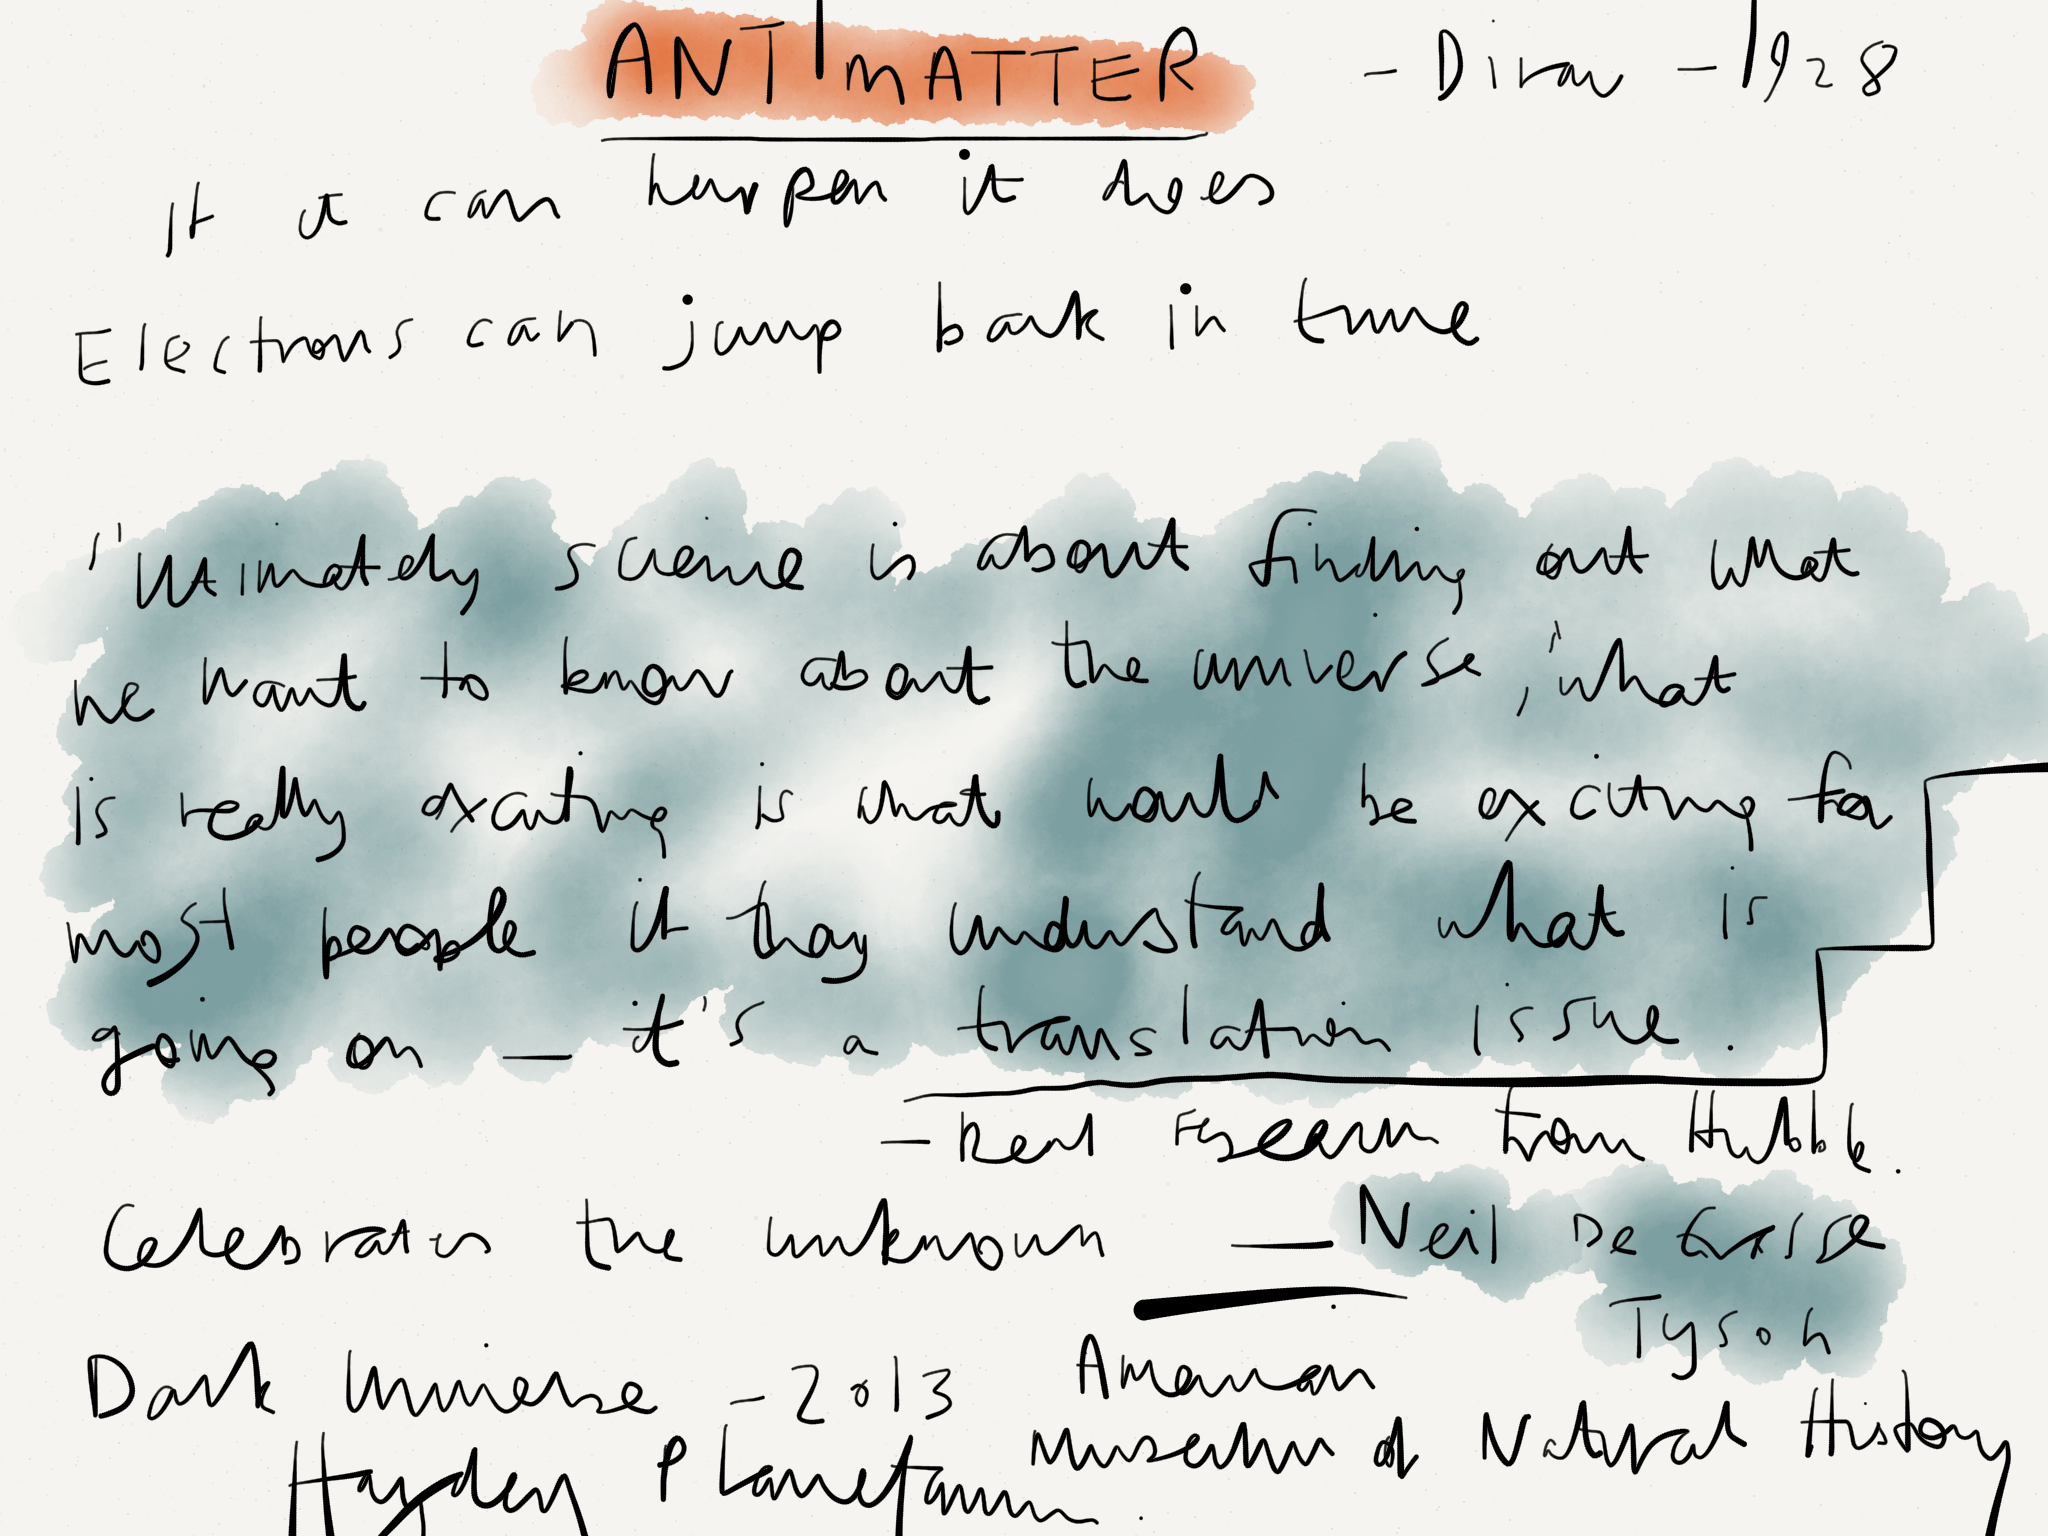 ANTIMATTER - Dirac - 1928
If it can happen it does
Electrons can jump back in time
"Ultimately science is about finding out what
we want to know about the universe, 'what
is really exciting is what would be exciting for
most people if they understand what is
going on — it's a translation issue.
- Real research from Hubble.
Celebrates the unknown — Neil De Grasse
Tyson
Dark Universe - 2013 American
Museum of Natural History
Hayden Planetarium.